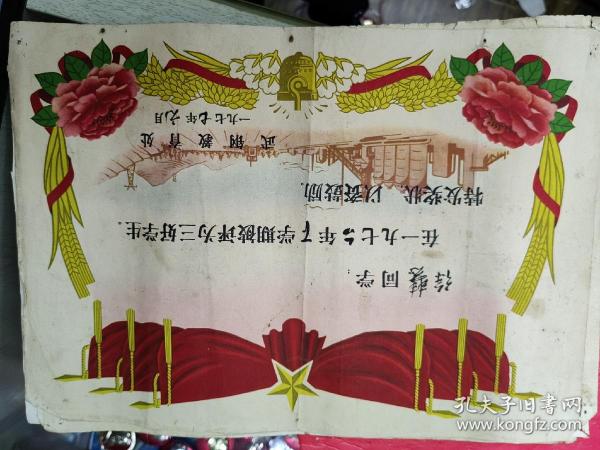 同学:
在一九七六年下学期被评为三好学生.
特发奖状、以资鼓励
武钢教育处
一九七七年元月
孔夫子旧书网
www.kongfz.com